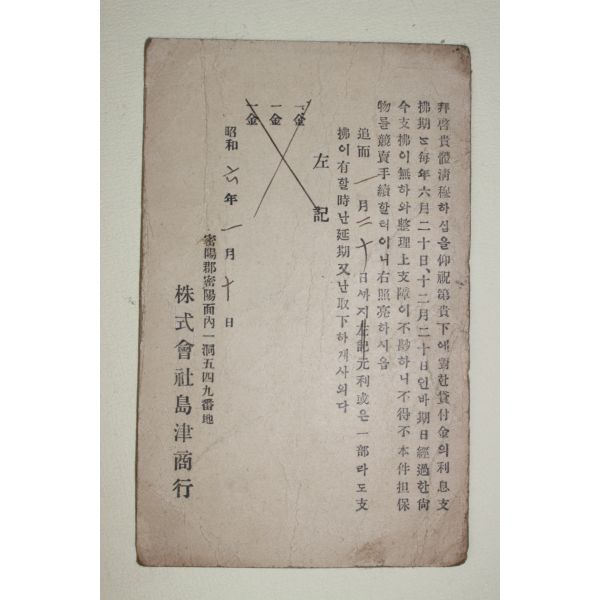 拜啓貴體淸穆하심을仰祝第貴下에對한貸付金의利息支
拂期는每年六月二十日、十二月二十日인바期日經過한尙
今支拂이無하와整理上支障이不尠하니不得不本件担保
物을競賣手續할터이니右照亮하시옵
追而一月二十日까지左記元利或은一部라도支
拂이有할時난延期又난取下하개사외다
左記
一金
一金
一金
昭和六年一月十日
密陽郡密陽面內一洞五四九番地
株式會社島津商行